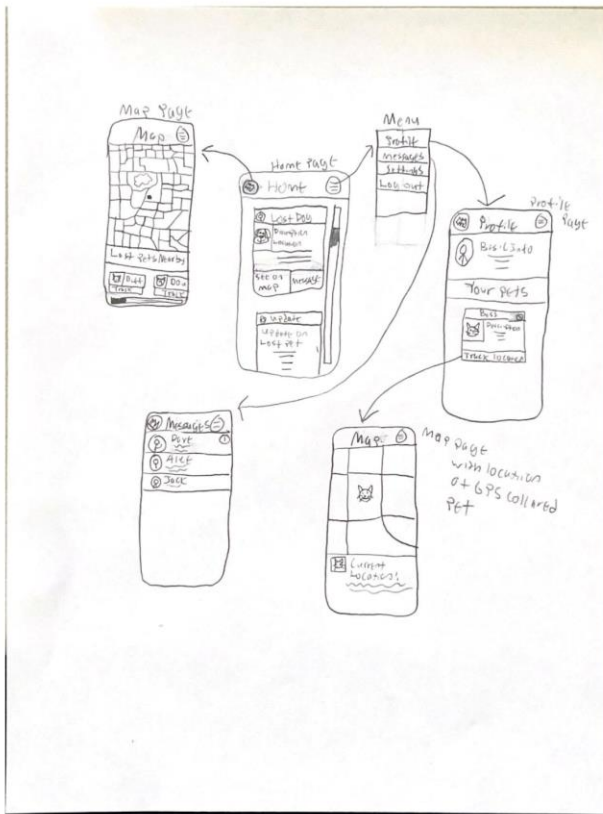 Map Page
Map
Lost Pets Nearby
Track
Home Page
Home
Lost Dog
Description
Location
See on
map
message
Update
Update on
Lost Pet
Menu
Profile
Messages
Settings
Log out
Profile
Page
Profile
Basic Info
Your Pets
Description
Track location
Messages
Alet
Jack
Map
Current
Location:
Map page
with location
of GPS collared
Pet